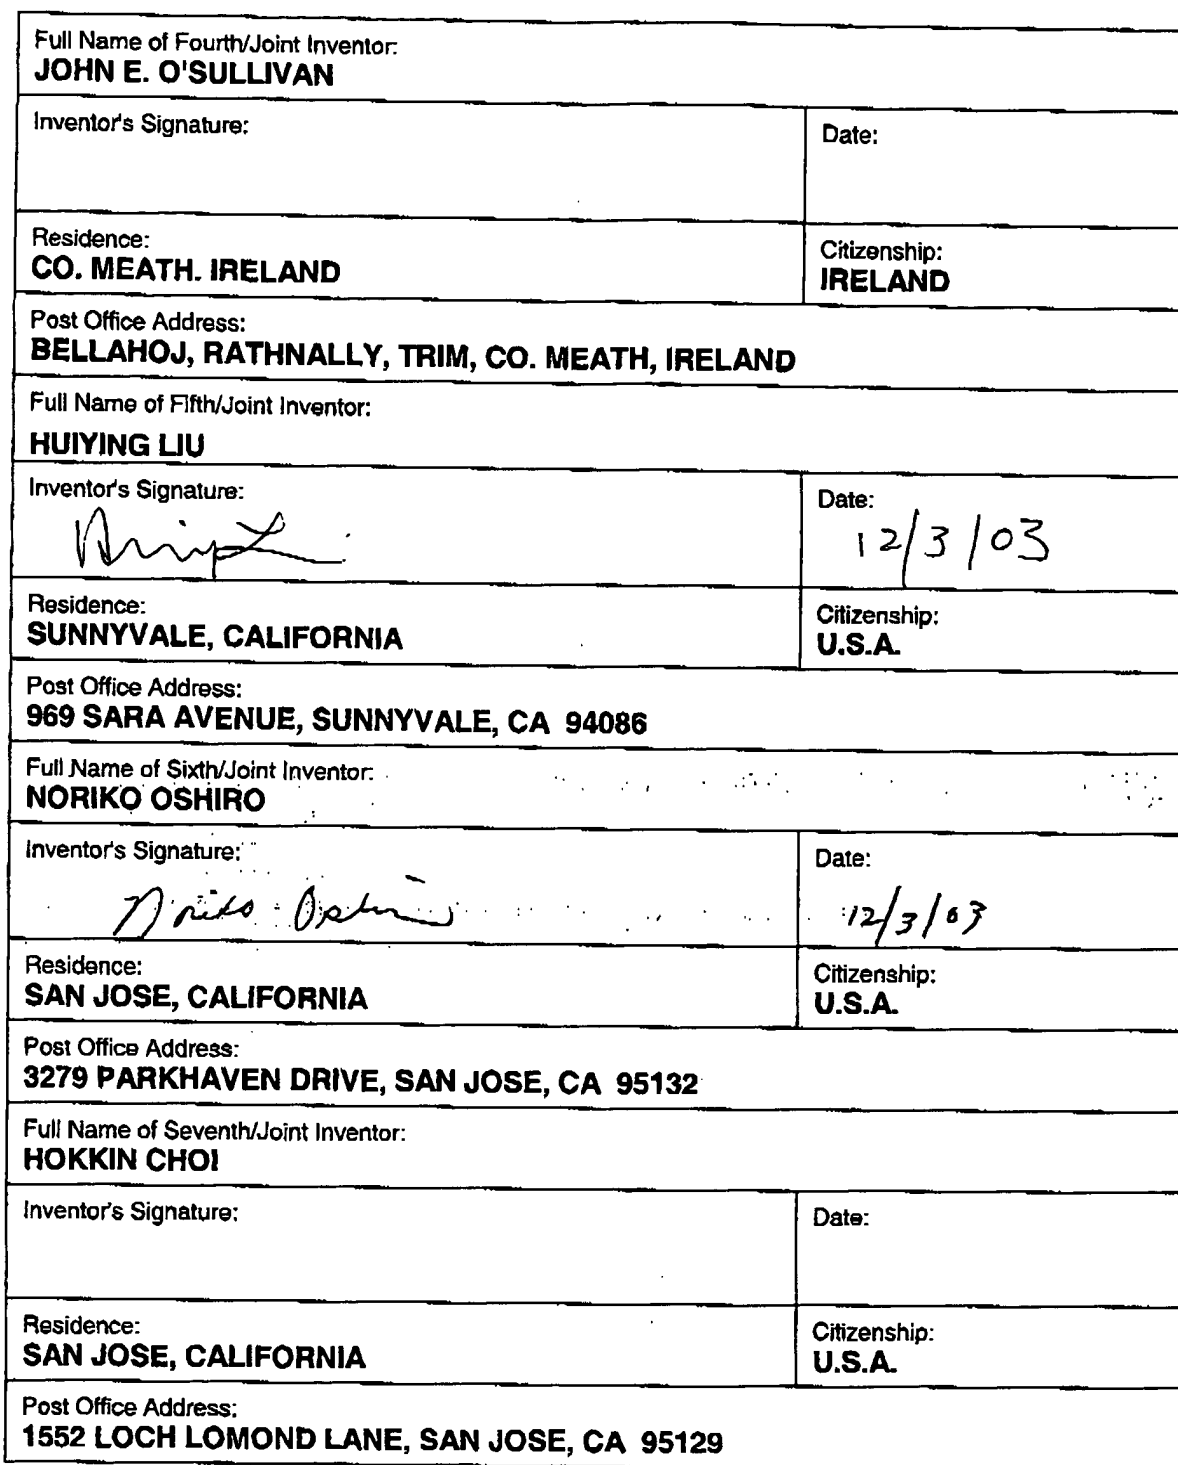 Full Name of Fourth/Joint Inventor:
JOHN E. O'SULLIVAN
Inventor's Signature:
Date:
Residence:
CO. MEATH. IRELAND
Citizenship:
IRELAND
Post Office Address:
BELLAHOJ, RATHNALLY, TRIM, CO. MEATH, IRELAND
Full Name of Fifth/Joint Inventor:
HUIYING LIU
Inventor's Signature:
Date:
12/3/03
Residence:
SUNNYVALE, CALIFORNIA
Citizenship:
U.S.A.
Post Office Address:
969 SARA AVENUE, SUNNYVALE, CA 94086
Full Name of Sixth/Joint Inventor:
NORIKO OSHIRO
Inventor's Signature:
Date:
Noriko Oshiro
12/3/03
Residence:
SAN JOSE, CALIFORNIA
Citizenship:
U.S.A.
Post Office Address:
3279 PARKHAVEN DRIVE, SAN JOSE, CA 95132
Full Name of Seventh/Joint Inventor:
HOKKIN CHOI
Inventor's Signature:
Date:
Residence:
SAN JOSE, CALIFORNIA
Citizenship:
U.S.A.
Post Office Address:
1552 LOCH LOMOND LANE, SAN JOSE, CA 95129